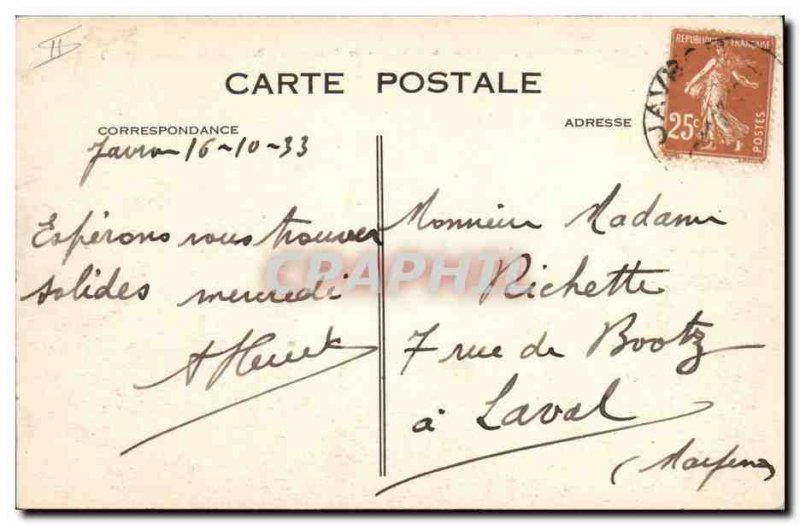 II
CARTE POSTALE
CORRESPONDANCE
ADRESSE
REPUBLIQUE FRANÇAISE
25c
POSTES
JAVR
Javron 16-10-33
Espérons vous trouver
solides mercredi
Monsieur Madame
Richette
7 rue de Bootz
à Laval
(Mayenne)
CPAPHIL